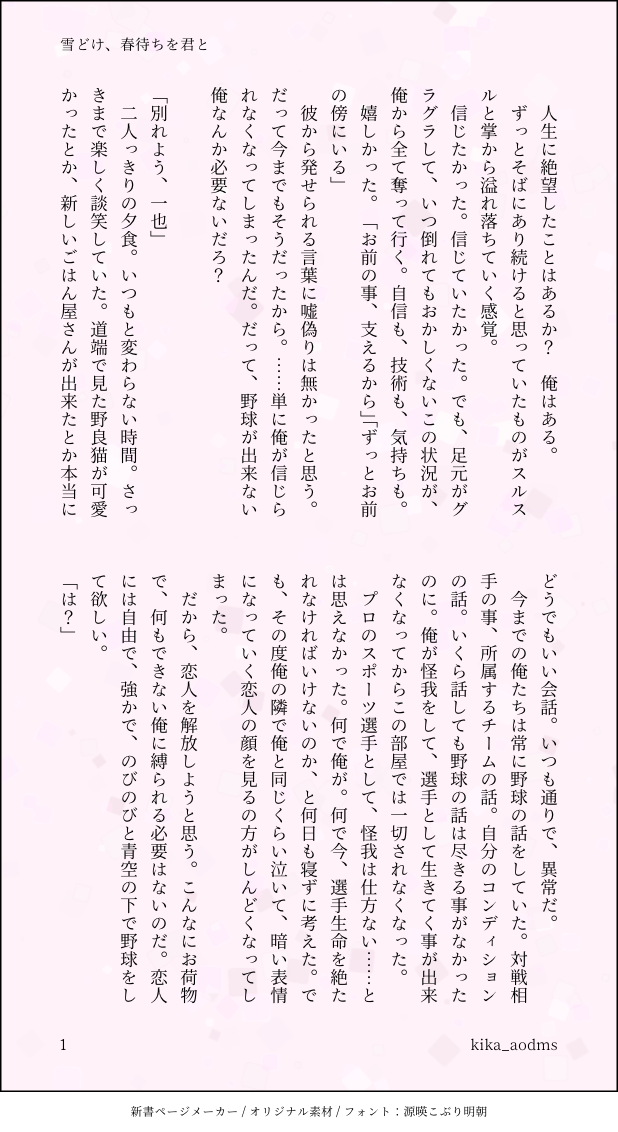 雪どけ、春待ちを君と
　人生に絶望したことはあるか？　俺はある。
　ずっとそばにあり続けると思っていたものがスルス
ルと掌から溢れ落ちていく感覚。
　信じたかった。信じていたかった。でも、足元がグ
ラグラして、いつ倒れてもおかしくないこの状況が、
俺から全て奪って行く。自信も、技術も、気持ちも。
　嬉しかった。「お前の事、支えるから」「ずっとお前
の傍にいる」
　彼から発せられる言葉に嘘偽りは無かったと思う。
だって今までもそうだったから。……単に俺が信じら
れなくなってしまったんだ。だって、野球が出来ない
俺なんか必要ないだろ？
「別れよう、一也」
　二人っきりの夕食。いつもと変わらない時間。さっ
きまで楽しく談笑していた。道端で見た野良猫が可愛
かったとか、新しいごはん屋さんが出来たとか本当に
どうでもいい会話。いつも通りで、異常だ。
　今までの俺たちは常に野球の話をしていた。対戦相
手の事、所属するチームの話。自分のコンディション
の話。いくら話しても野球の話は尽きる事がなかった
のに。俺が怪我をして、選手として生きてく事が出来
なくなってからこの部屋では一切されなくなった。
　プロのスポーツ選手として、怪我は仕方ない……と
は思えなかった。何で俺が。何で今、選手生命を絶た
れなければいけないのか、と何日も寝ずに考えた。で
も、その度俺の隣で俺と同じくらい泣いて、暗い表情
になっていく恋人の顔を見るの方がしんどくなってし
まった。
　だから、恋人を解放しようと思う。こんなにお荷物
で、何もできない俺に縛られる必要はないのだ。恋人
には自由で、強かで、のびのびと青空の下で野球をし
て欲しい。
「は？」
1
kika_aodms
新書ページメーカー / オリジナル素材 / フォント：源暎こぶり明朝